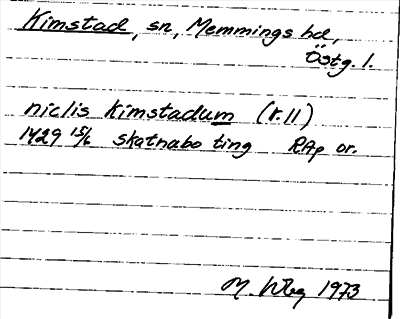 Kimstad, sn, Memmings hd,
Östg. l.
niclis Kimstadum (r. 11)
1429 15/6 skatnabo ting RAp or.
M. Wbg 1973